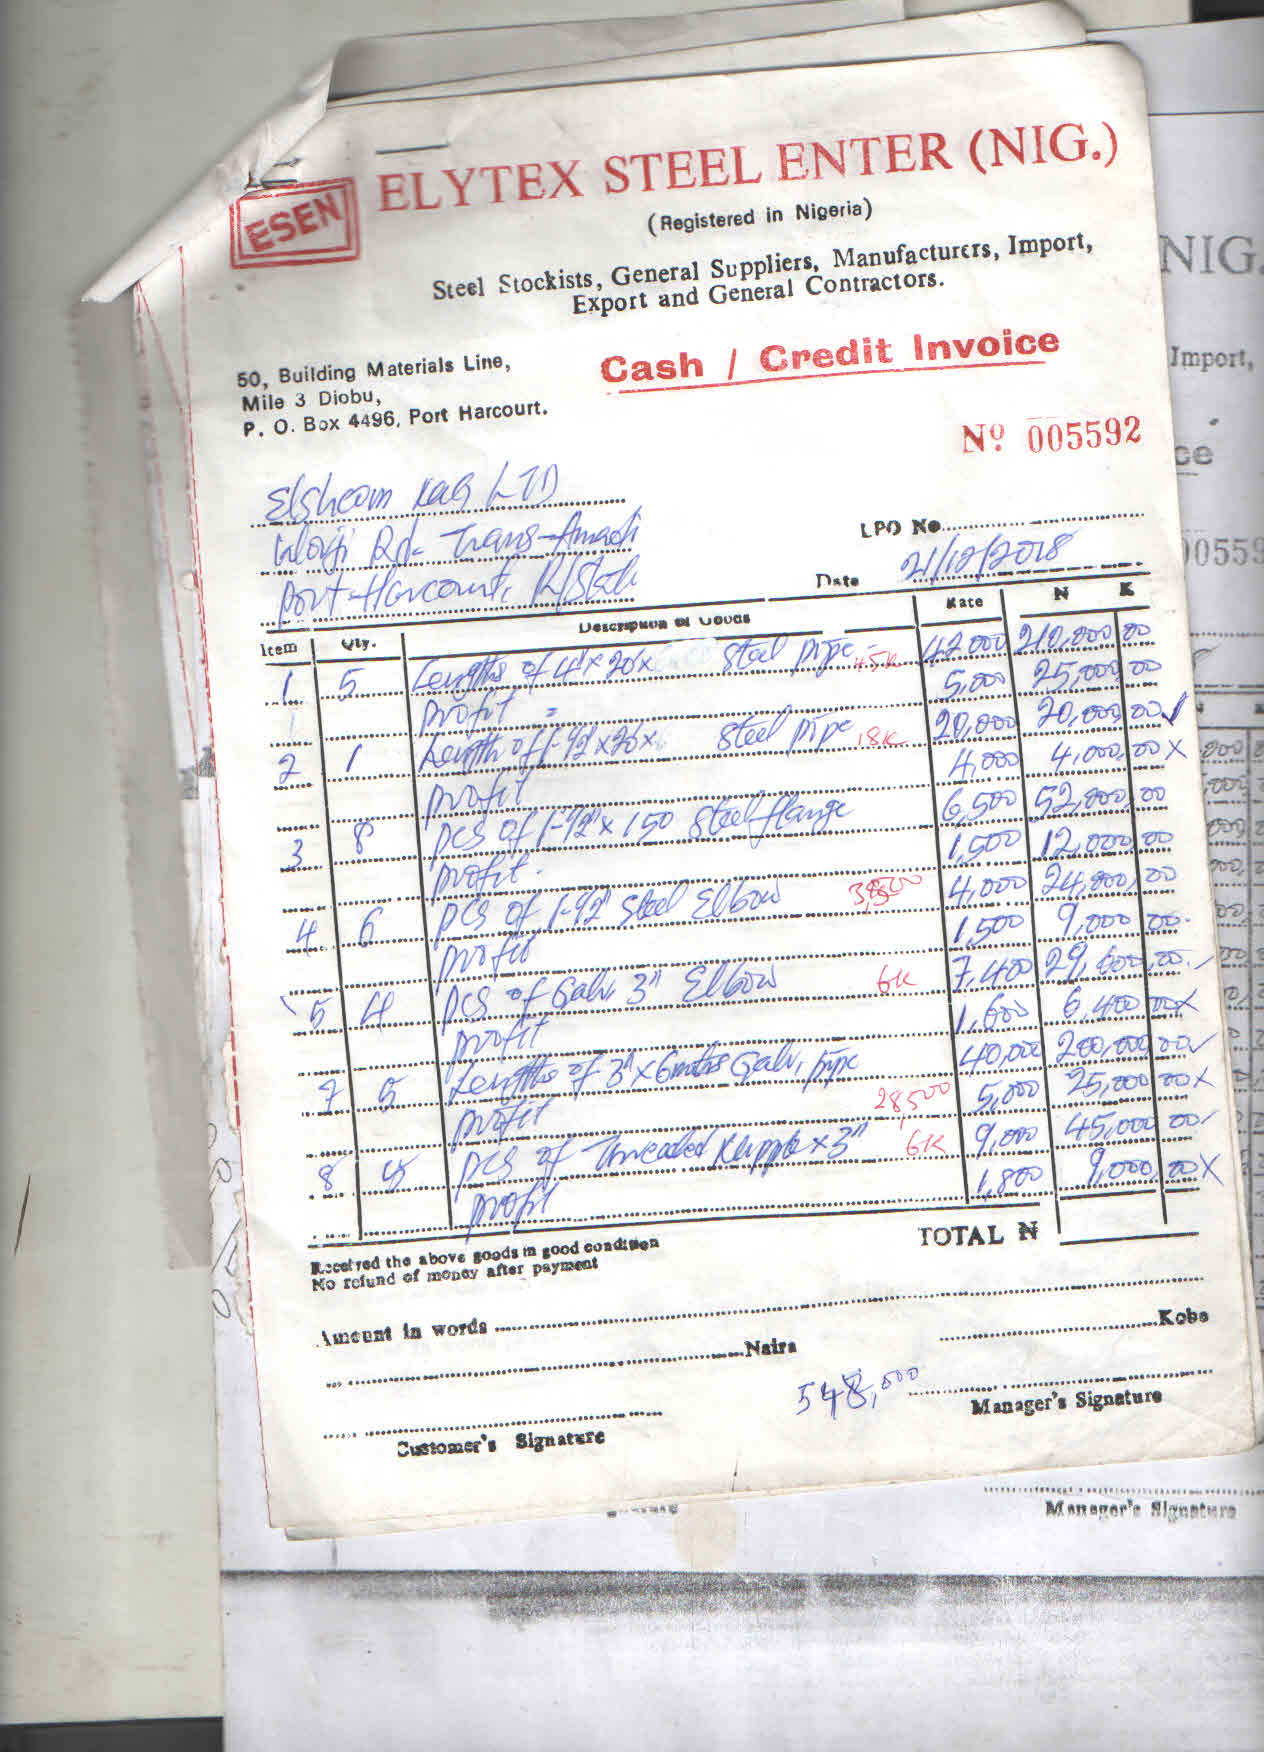 ELYTEX STEEL ENTER (NIG.)
ESEN
(Registered in Nigeria)
Steel Stockists, General Suppliers, Manufacturers, Import,
Export and General Contractors.
50, Building Materials Line,
Mile 3 Diobu,
P. O. Box 4496, Port Harcourt.
Cash / Credit Invoice
Nº 005592
LTD
Rd- Trans-Amadi
Port-Harcourt,
LPO No
Date 21/12/2018
Item Qty. Description of Goods Rate ₦ K
1 5 Lengths of 4"x20'x steel pipe 45K 42,000 210,000 00
profit = 5,000 25,000 00
2 1 Length of 1-1/2"x20'x steel pipe 18K 20,000 20,000 00
profit 4,000 4,000 00 X
3 8 pcs of 1-1/2"x150 steel flange 6,500 52,000 00
profit. 1,500 12,000 00
4 6 pcs of 1-1/2" steel Elbow 4,000 24,000 00
profit 1,500 9,000 00
5 4 pcs of Galv. 3" Elbow 6K 7,400 29,600 00
profit 1,600 6,400 00 X
7 5 Lengths of 3"x6mtrs Galv. pipe 40,000 200,000 00
profit 28,500 5,000 25,000 00 X
8 5 pcs of Threaded x 3" 6K 9,000 45,000 00
profit 1,800 9,000 00 X
TOTAL ₦
Received the above goods in good condition
No refund of money after payment
Amount in words
Naira Kobo
548,000
Customer's Signature Manager's Signature
NIG.
Import,
ce
0559
Manager's Signature